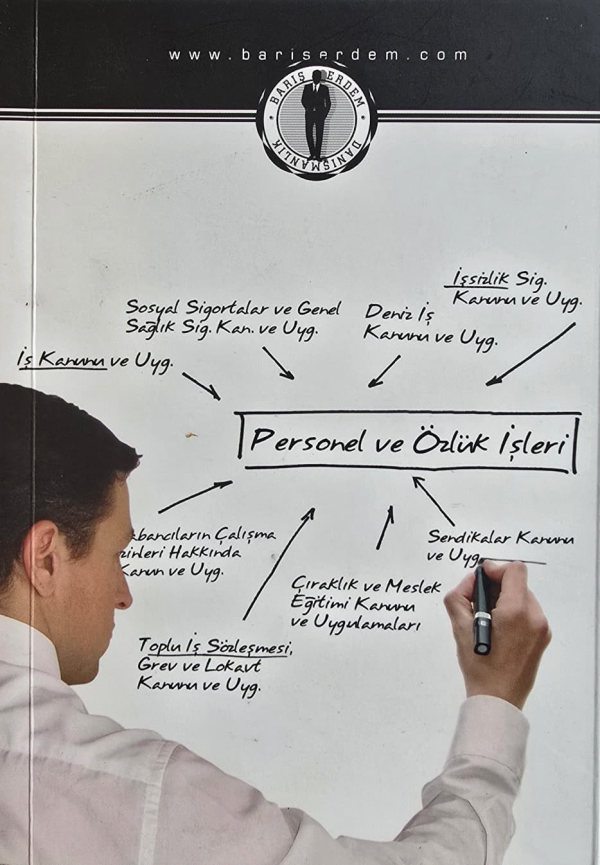 www.bariserdem.com
BARIŞ ERDEM
DANIŞMANLIK
İşsizlik Sig.
Kanunu ve Uyg.
Sosyal Sigortalar ve Genel
Sağlık Sig. Kan. ve Uyg.
Deniz İş
Kanunu ve Uyg.
İş Kanunu ve Uyg.
Personel ve Özlük İşleri
Çalışma
Hakkında
ve Uyg.
Sendikalar Kanunu
ve Uyg.
Çıraklık ve Meslek
Eğitimi Kanunu
ve Uygulamaları
Toplu İş Sözleşmesi,
Grev ve Lokavt
Kanunu ve Uyg.